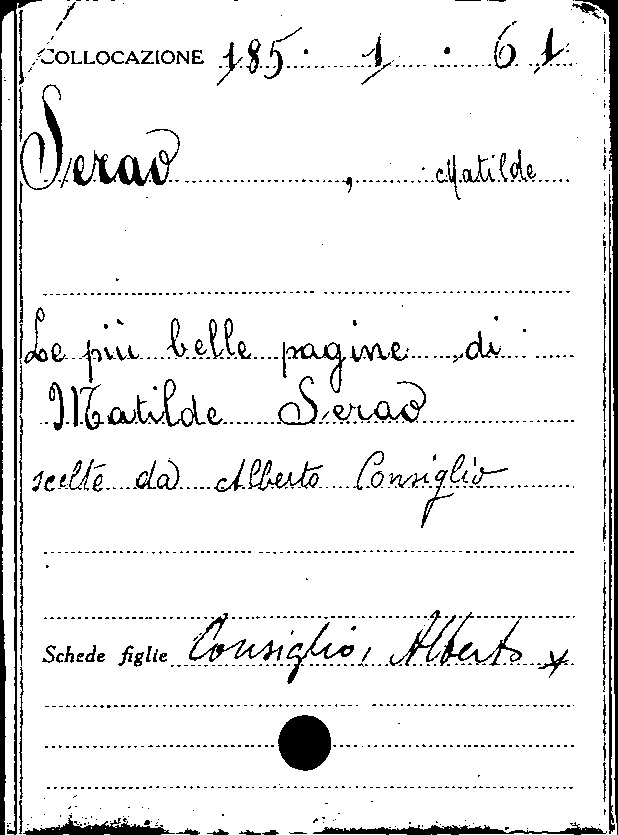 COLLOCAZIONE 185. 1. 61
Serao, Matilde
Le più belle pagine di
Matilde Serao
scelte da Alberto Consiglio
Schede figlie Consiglio, Alberto x